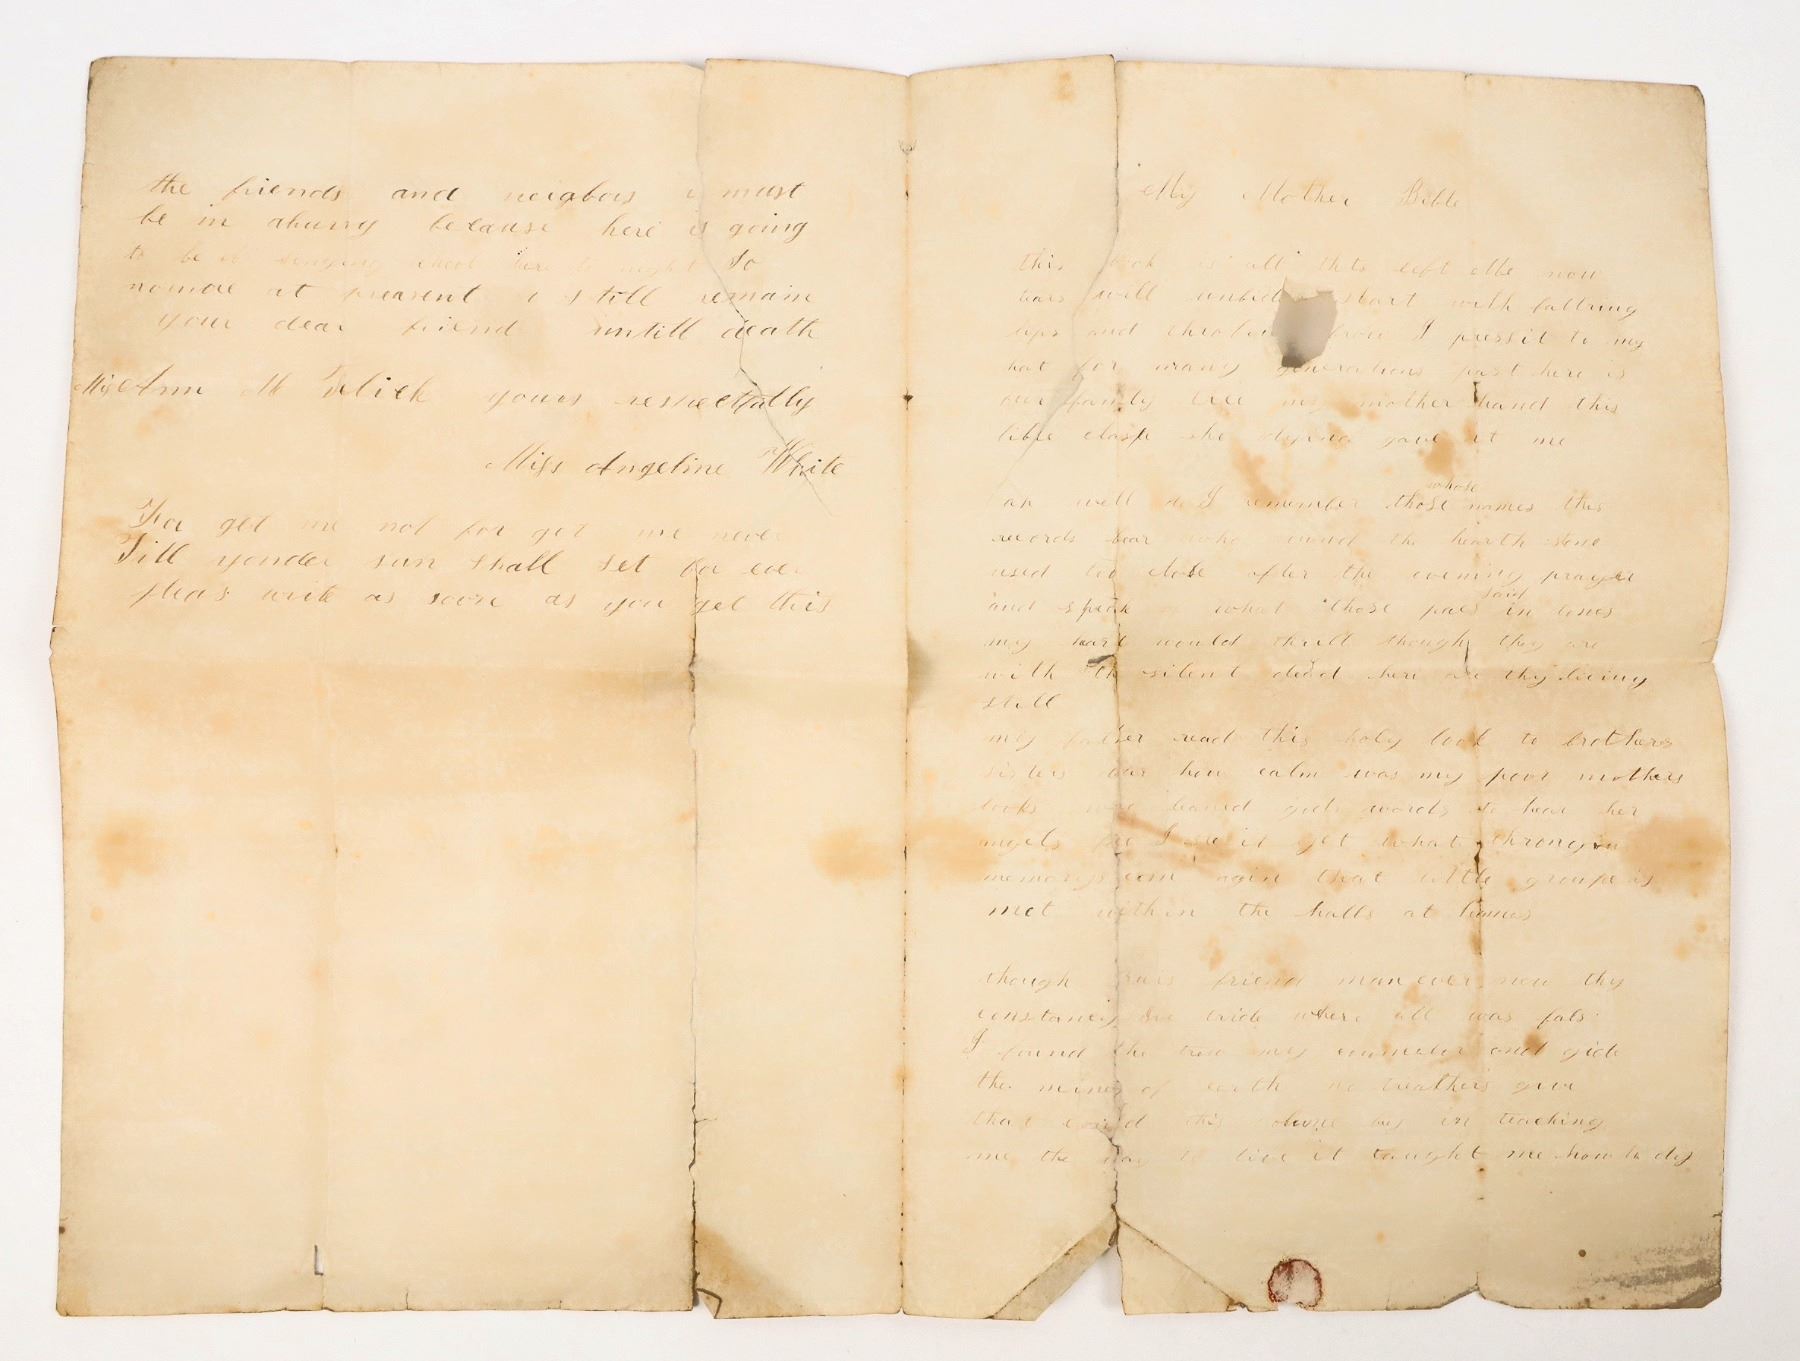 the friends and neighbors i must
be in ahurry because here is going
to be a singing school here to night So
nomore at prearent i still remain
your dear friend untill death
Miss Ann M yours respectfully
Miss Angeline White
For get me not for get me never
Till yonder sun shall set for ever
pleas write as soon as you get this
My Mother Bible
this book is all thts left me now
tears will unbid start with faltring
lips and throbin brow I press it to my
hat for many generations past here is
our family tree my mother hand this
bible clasp she dying gave it me
ah well do I remember those whose names this
records bear who round the hearth stone
used too close after the evening prayer
and speak of what those paes said in tones
my hart would thrill though they are
with th silent dead here are thy living
still
my father read this holy book to brothers
sisters dear how calm was my poor mothers
looks who leaned gods words to hear her
angels I see it yet what throngin
memorys com agin that little groupe is
met within the halls at homes
though friend man ever new thy
constancy Ive tride where all was fals
I found the treu my counseler and gide
the mines of earth no treathers give
that could this volume buy in teaching
me the way to live it taught me how to dy